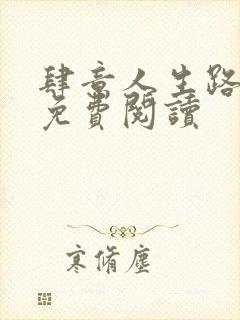 肆意人生路
免費閱讀
寒脩塵